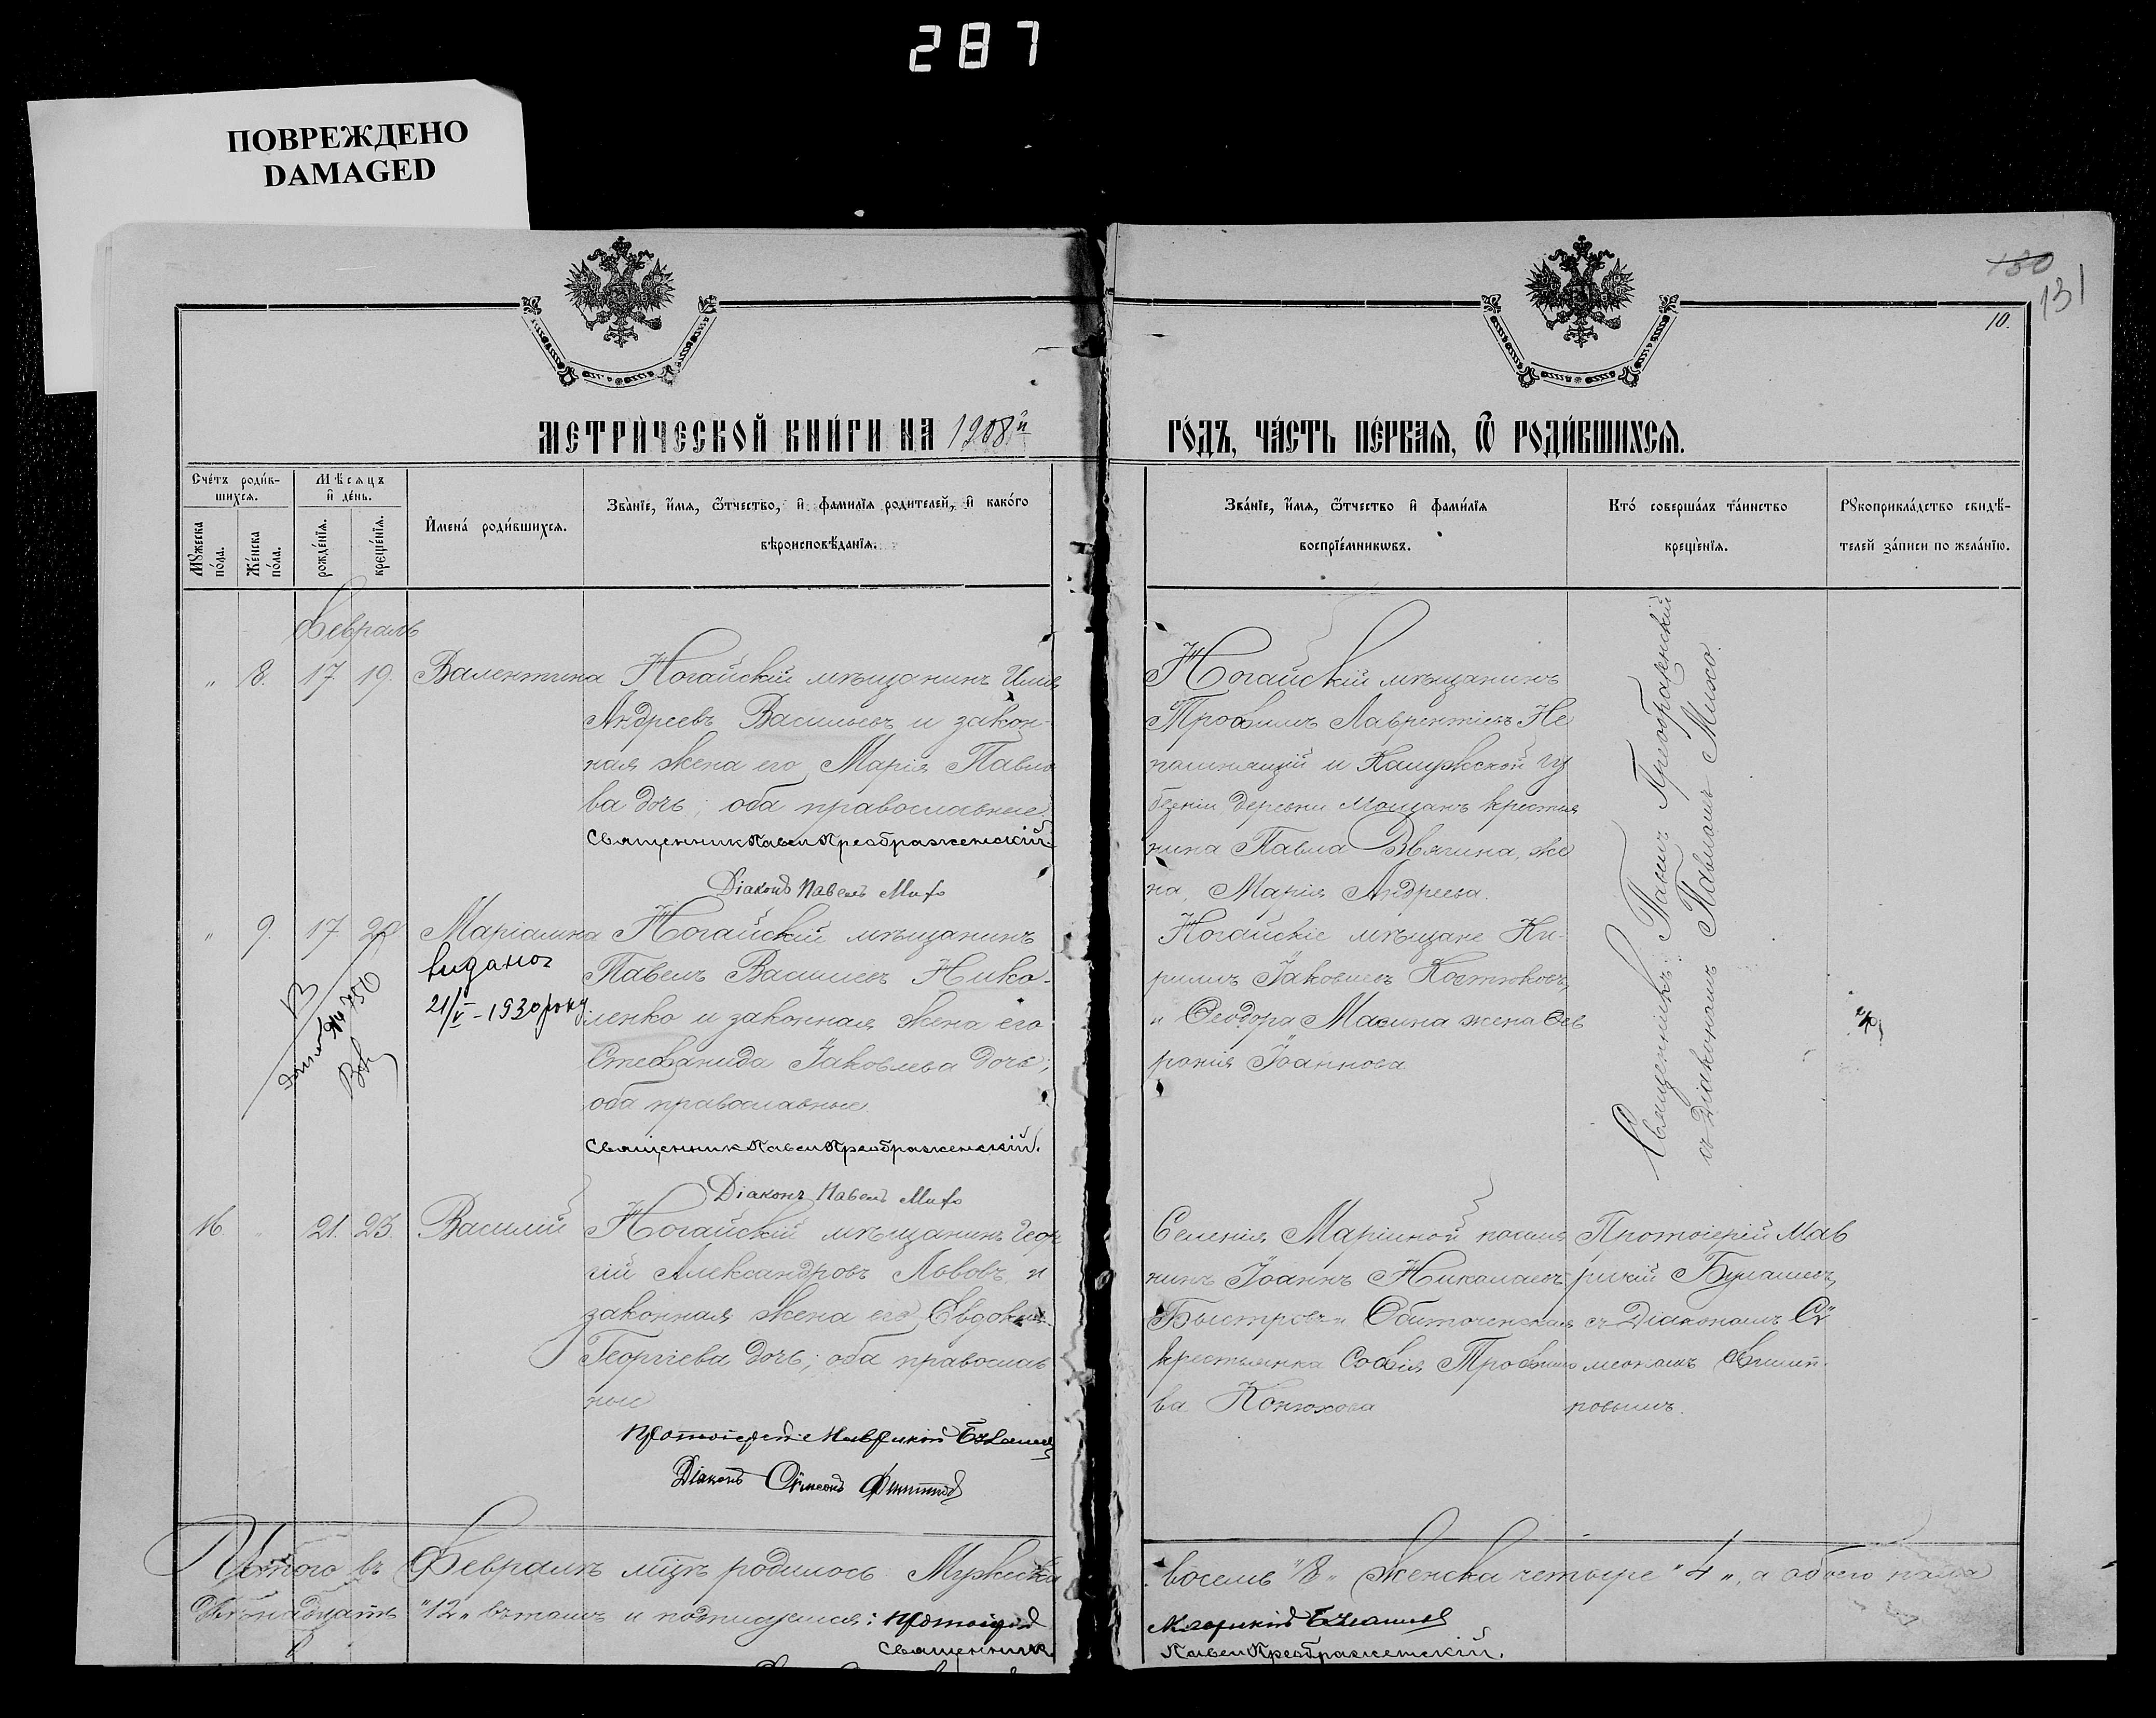 287
ПОВРЕЖДЕНО
DAMAGED
130
131
10.
МЕТРИ́ЧЕСКОЙ КНИ́ГИ НА 1908й
ГО́ДЪ, ЧА́СТЬ ПЕ́РВАЯ, Ѿ РОДИ́ВШИХСЯ.
Сче́тъ роди́в-
шихся.
Мѣсяцъ
и҆ де́нь.
Мꙋжеска по́ла.
Же́нска по́ла.
рожде́нїя.
креще́нїя.
И҆мена́ роди́вшихся.
Зва́нїе, и҆́мя, ѻ҆́тчество, и҆ фами́лїя родителей, и҆ како́го
вѣроисповѣ́данїя.
Зва́нїе, и҆́мя, ѻ҆́тчество и҆ фами́лїя
воспрїе́мникѡвъ.
Кто́ соверша́лъ та́инство
креще́нїя.
Рꙋкоприкла́дство свидѣ́-
телей за́писи по жела́нїю.
Февраль
" 8. 17 19. Валентина
Ногайскій мѣщанинъ
Андреевъ Васильевъ и закон-
ная жена его Марія Павло
ва дочь; оба православные.
Священник Павел Преображенскій.
Діаконъ Павелъ Михо
Ногайскій мѣщанинъ
Трофимъ Лаврентіевъ Не
помнящій и Калужской гу
берніи, деревни крестья
нина Павла Звягина, же
на, Марія Андреева.
Священникъ Павелъ Преображенскій
съ діакономъ Павломъ Михо.
" 9. 17 20 Маріамна
видано
21/V - 1930 року
Ногайскій мѣщанинъ
Павелъ Васильевъ Нико-
ленко и законная жена его
Стефанида Іаковлева дочь;
оба православные.
Священник Павел Преображенскій.
Діаконъ Павелъ Михо
Ногайскіе мѣщане Ки-
риллъ Іаковлевъ Костюковъ,
и Ѳеодора Масина жена Фев
ронія Іоаннова
16. " 21. 23. Василій
Ногайскій мѣщанинъ Геор
гій Александровъ Львовъ и
законная жена его Евдокія
Георгіева дочь; оба православ
ные
Протоіерей Маврикій Булашев
Діаконъ Сѵмеонъ Филиппов
Селенія Маріиной поселя
нинъ Іоаннъ Николаевъ
Быстровъ и Обиточенская
крестьянка Софія Трофимо
ва Конюхова
Протоіерей Мав
рикій Булашевъ,
съ Діакономъ Сѵ
меономъ Филип-
повымъ.
Итого въ Февралѣ мцѣ родилось Мужеска
восемь "8" Женска четыре "4", а обоего пола
двѣнадцать "12" въ томъ и подписуемся: Протоіерей
Маврикій Булашев
Священник
Павел Преображенскій.